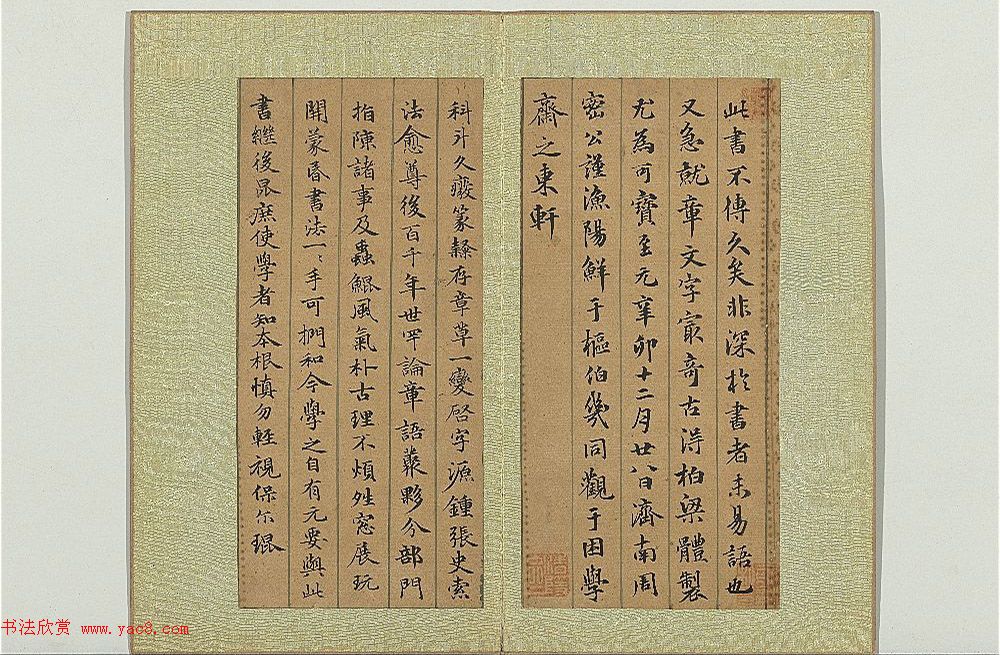 此書不傳久矣非深於書者未易語也
又急就章文字寂奇古淂柏梁體製
尤為可寶至元辛卯十二月廿八日濟南周
密公謹漁陽鮮于樞伯㡬同觀于困學
齋之東軒
科斗久癈篆䋣存章草一變啓字源鍾張史索
法愈尊後百千年世罕論章語叢夥分部門
指陳諸事及蟲鯤風氣朴古理不煩 窓展玩
開蒙昏書法一〻手可捫和今學之自有元要與此
書繼後昆庶使學者知本根慎勿輕視保尓琨
书法欣赏 www.yac8.com